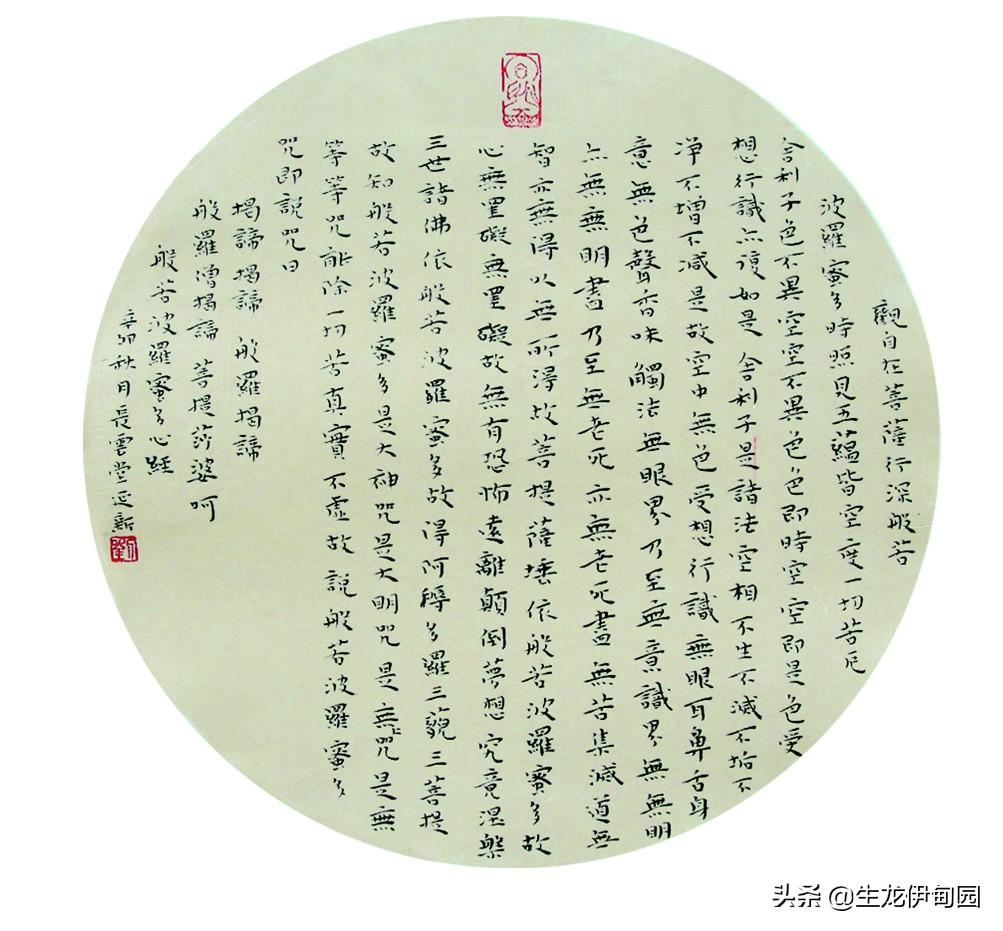 觀自在菩薩行深般若
波羅蜜多時照見五蘊皆空度一切苦厄
舍利子色不異空空不異色色即時空空即是色受
想行識亦復如是舍利子是諸法空相不生不滅不垢不
淨不增不減是故空中無色受想行識無眼耳鼻舌身
意無色聲香味觸法無眼界乃至無意識界無無明
亦無無明盡乃至無老死亦無老死盡無苦集滅道無
智亦無得以無所得故菩提薩埵依般若波羅蜜多故
心無罣礙無罣礙故無有恐怖遠離顛倒夢想究竟涅槃
三世諸佛依般若波羅蜜多故得阿耨多羅三藐三菩提
故知般若波羅蜜多是大神咒是大明咒是無上咒是無
等等咒能除一切苦真實不虛故說般若波羅蜜多
咒即說咒曰
揭諦揭諦 般羅揭諦
般羅僧揭諦 菩提薩婆呵
般若波羅蜜多心經
辛卯秋月長雲堂延新
头条 @生龙伊甸园